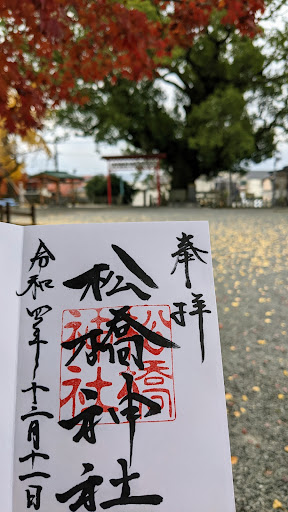 奉拝
松橋神社
松橋神社
令和四年十二月十一日